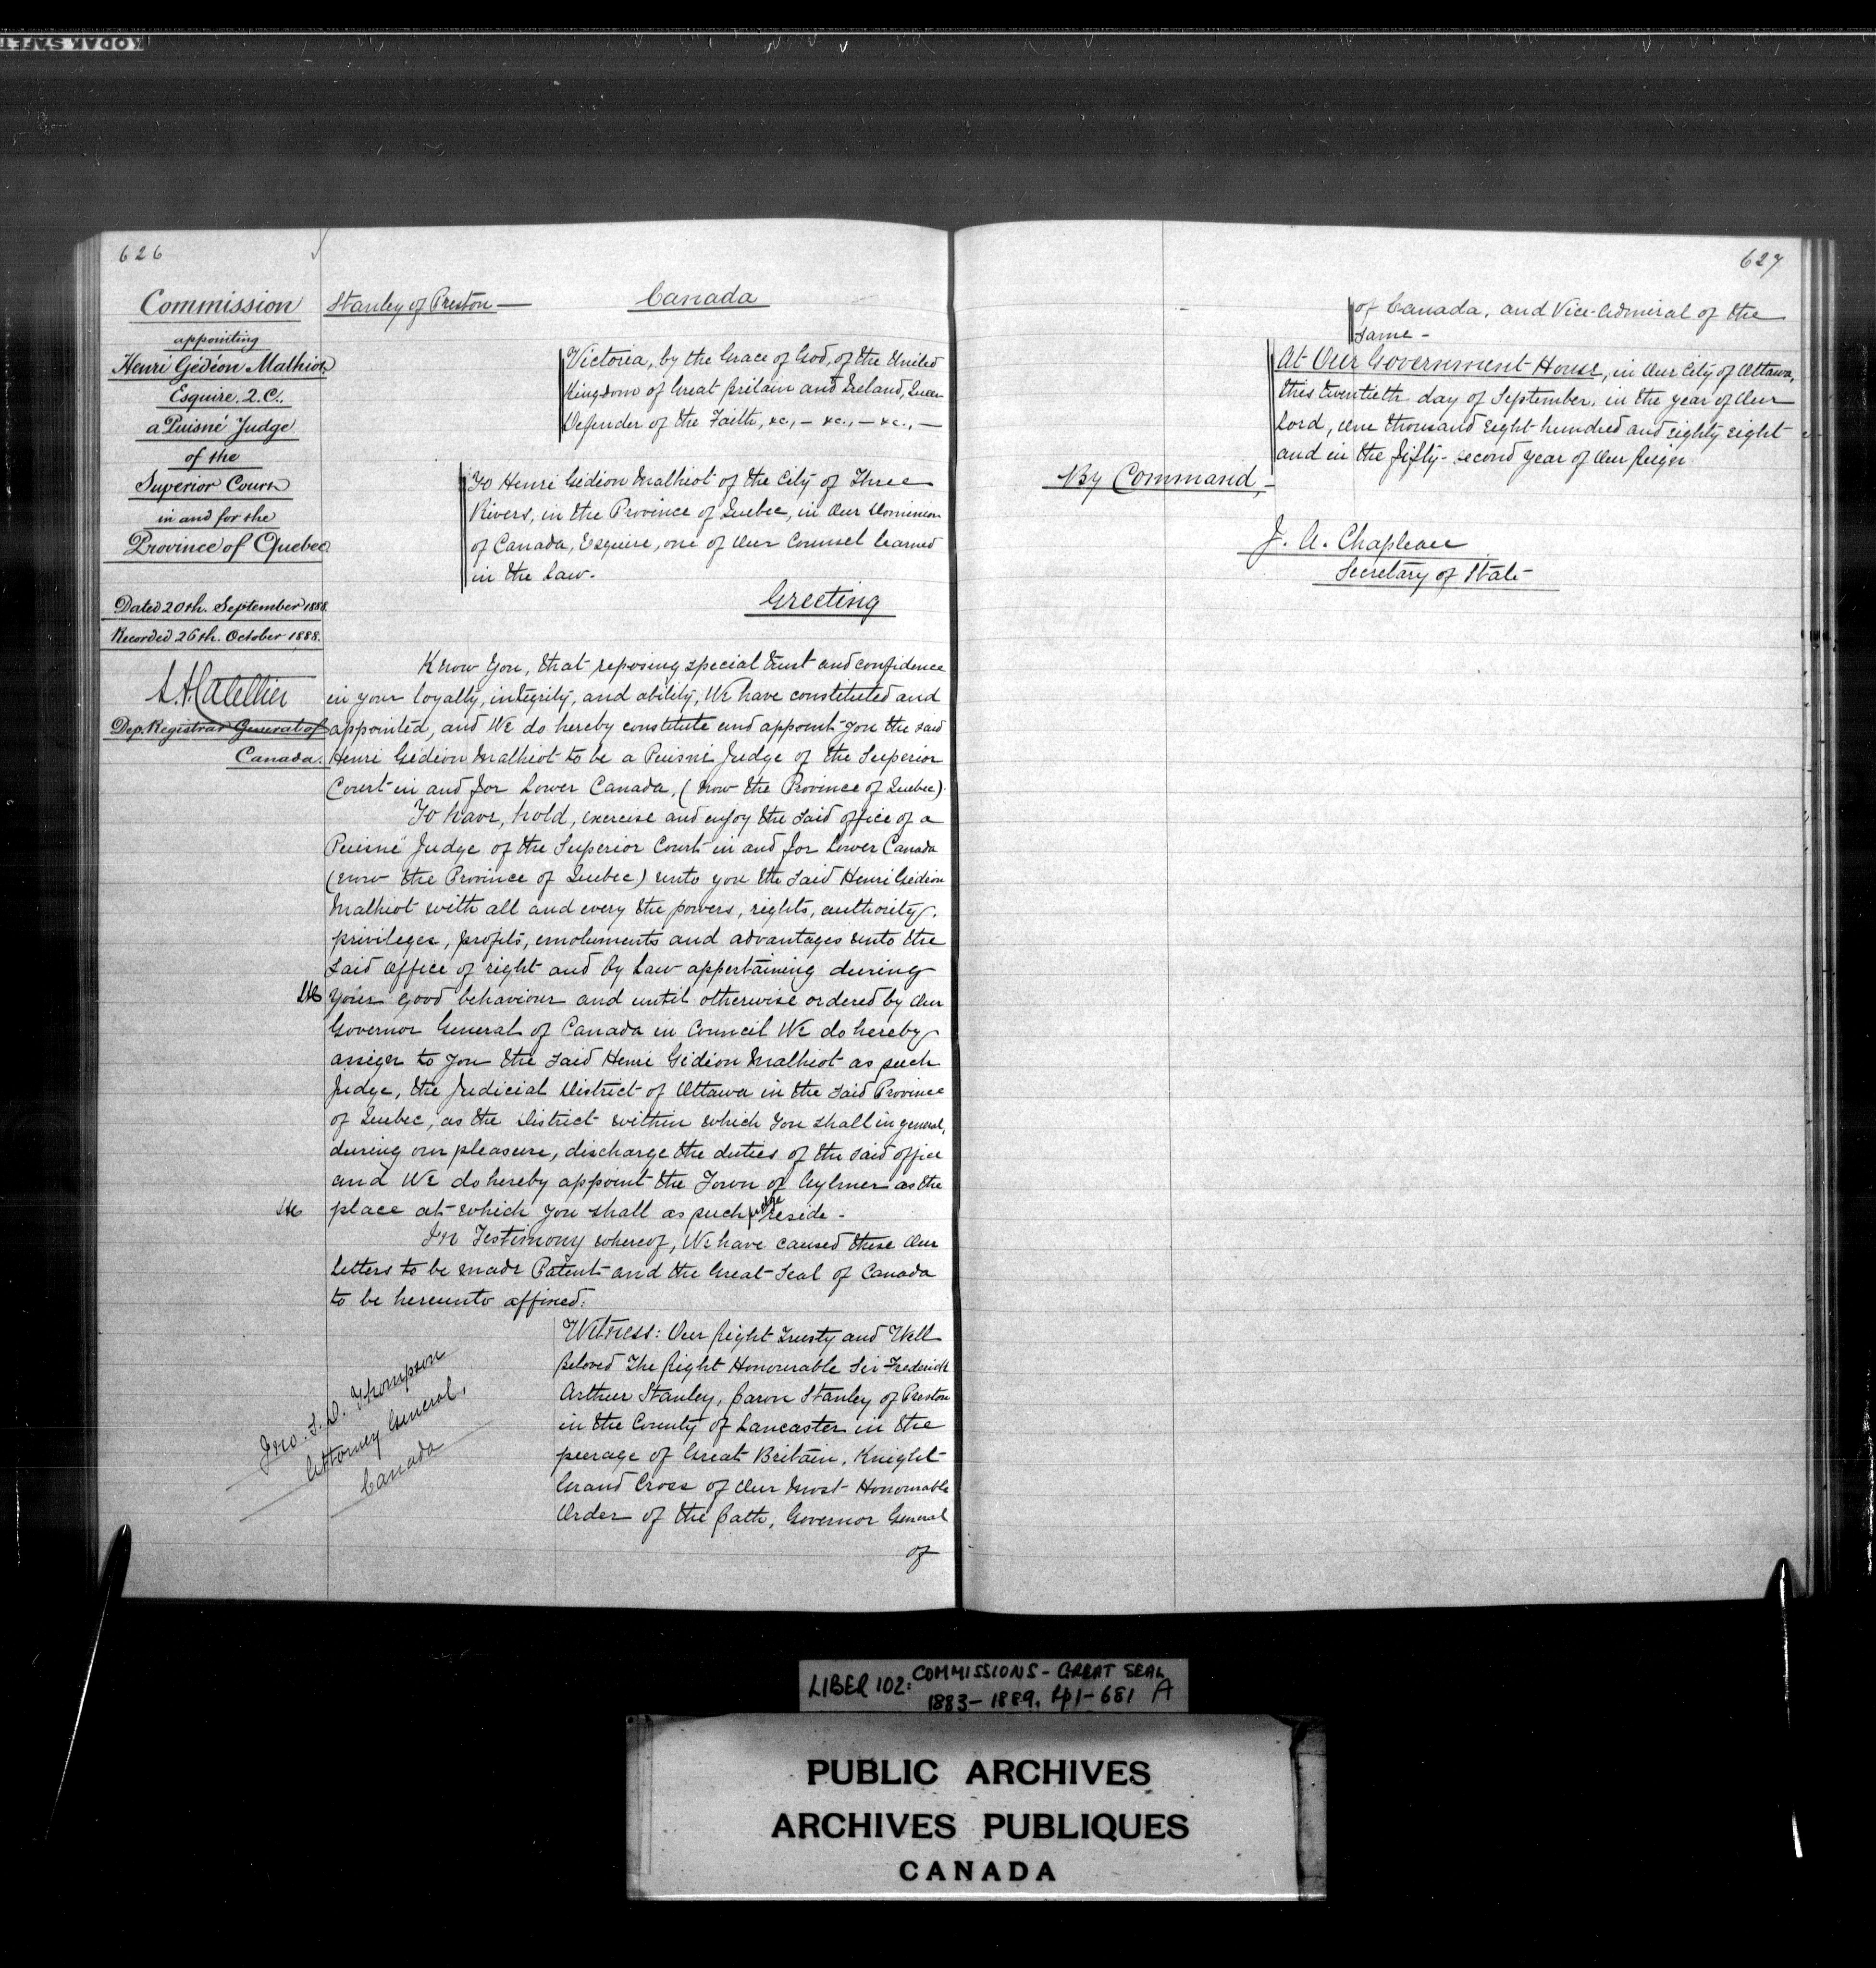 KODAK SAFET
626
Commission
appointing
Henri Gédéon Malhiot,
Esquire. Q.C.,
a Puisné Judge
of the
Superior Court
in and for the
Province of Quebec
Dated 20th. September 1888.
Recorded 26th. October 1888.
Dep. Registrar General of
Canada.
Stanley of Preston —
Canada
Victoria, by the Grace of God, of the United
Kingdom of Great Britain and Ireland, Queen
Defender of the Faith, &c., — &c., — &c., —
To Henri Gédéon Malhiot of the City of Three
Rivers, in the Province of Quebec, in Our Dominion
of Canada, Esquire, one of Our Counsel learned
in the Law.
Greeting
Know You, that reposing special trust and confidence
in your loyalty, integrity, and ability, We have constituted and
appointed, and We do hereby constitute and appoint you the said
Henri Gédéon Malhiot to be a Puisné Judge of the Superior
Court in and for Lower Canada, (now the Province of Quebec).
To have, hold, exercise and enjoy the said office of a
Puisné Judge of the Superior Court in and for Lower Canada
(now the Province of Quebec) unto you the said Henri Gédéon
Malhiot with all and every the powers, rights, authority,
privileges, profits, emoluments and advantages unto the
said Office of right and by Law appertaining during
your good behaviour and until otherwise ordered by Our
Governor General of Canada in Council We do hereby
assign to you the said Henri Gédéon Malhiot as such
Judge, the Judicial District of Ottawa in the said Province
of Quebec, as the District within which you shall in general,
during our pleasure, discharge the duties of the said office
and We do hereby appoint the Town of Aylmer as the
place at which you shall as such Judge reside -
In Testimony whereof, We have caused these Our
Letters to be made Patent and the Great Seal of Canada
to be hereunto affixed:
Witness: Our Right Trusty and Well
Beloved The Right Honourable Sir Frederick
Arthur Stanley, Baron Stanley of Preston
in the County of Lancaster in the
peerage of Great Britain, Knight
Grand Cross of Our Most Honourable
Order of the Bath, Governor General
of
Jno. S. D. Thompson
Attorney General,
Canada
627
of Canada, and Vice-Admiral of the
Same -
At Our Government House, in Our City of Ottawa,
this twentieth day of September, in the year of Our
Lord, One thousand eight hundred and eighty eight
and in the fifty-second year of Our Reign
By Command,-
J. A. Chapleau
Secretary of State-
LIBER 102: COMMISSIONS - GREAT SEAL
1883-1889, pp1-681 A
PUBLIC ARCHIVES
ARCHIVES PUBLIQUES
CANADA